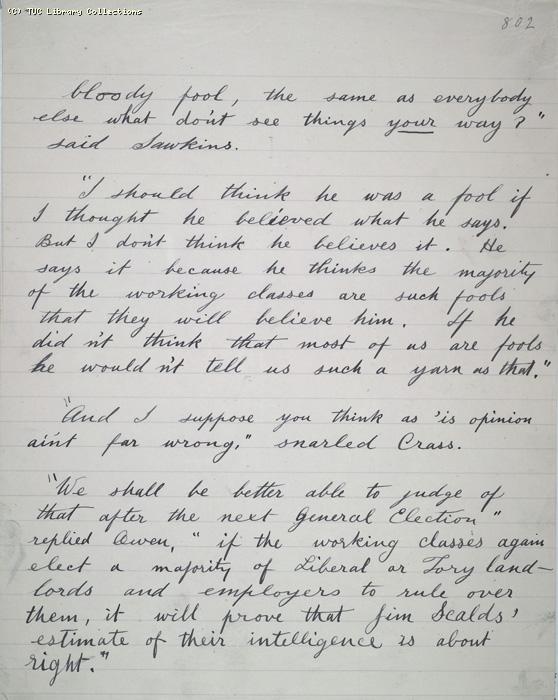 (C) TUC Library Collections
802
bloody fool, the same as everybody
else what don't see things your way?"
said Sawkins.
"I should think he was a fool if
I thought he believed what he says.
But I don't think he believes it. He
says it because he thinks the majority
of the working classes are such fools
that they will believe him. If he
did n't think that most of us are fools
he would n't tell us such a yarn as that."
"And I suppose you think as 'is opinion
ain't far wrong," snarled Crass.
"We shall be better able to judge of
that after the next General Election"
replied Owen, "if the working classes again
elect a majority of Liberal or Tory land-
lords and employers to rule over
them, it will prove that Jim Scalds'
estimate of their intelligence is about
right."